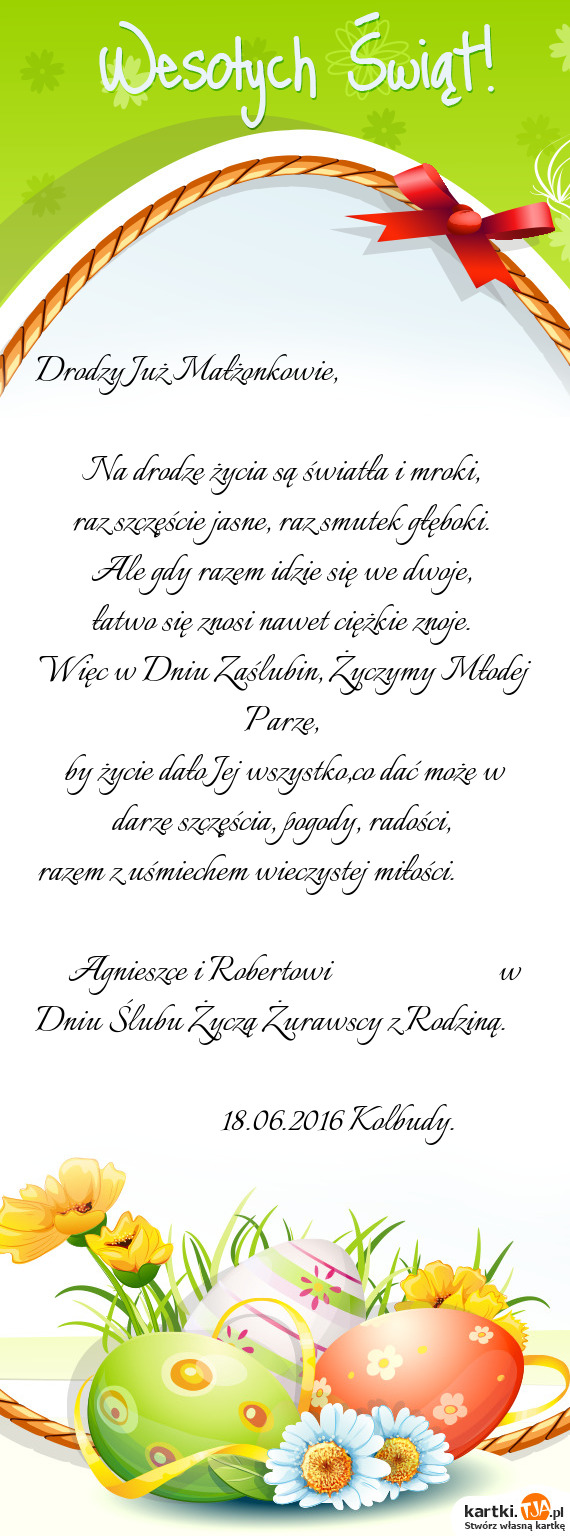 Wesołych Świąt!
Drodzy Już Małżonkowie,
Na drodze życia są światła i mroki,
raz szczęście jasne, raz smutek głęboki.
Ale gdy razem idzie się we dwoje,
łatwo się znosi nawet ciężkie znoje.
Więc w Dniu Zaślubin, Życzymy Młodej
Parze,
by życie dało Jej wszystko,co dać może w
darze szczęścia, pogody, radości,
razem z uśmiechem wieczystej miłości.
Agnieszce i Robertowi w
Dniu Ślubu Życzą Żurawscy z Rodziną.
18.06.2016 Kolbudy.
kartki.TJA.pl
Stwórz własną kartkę